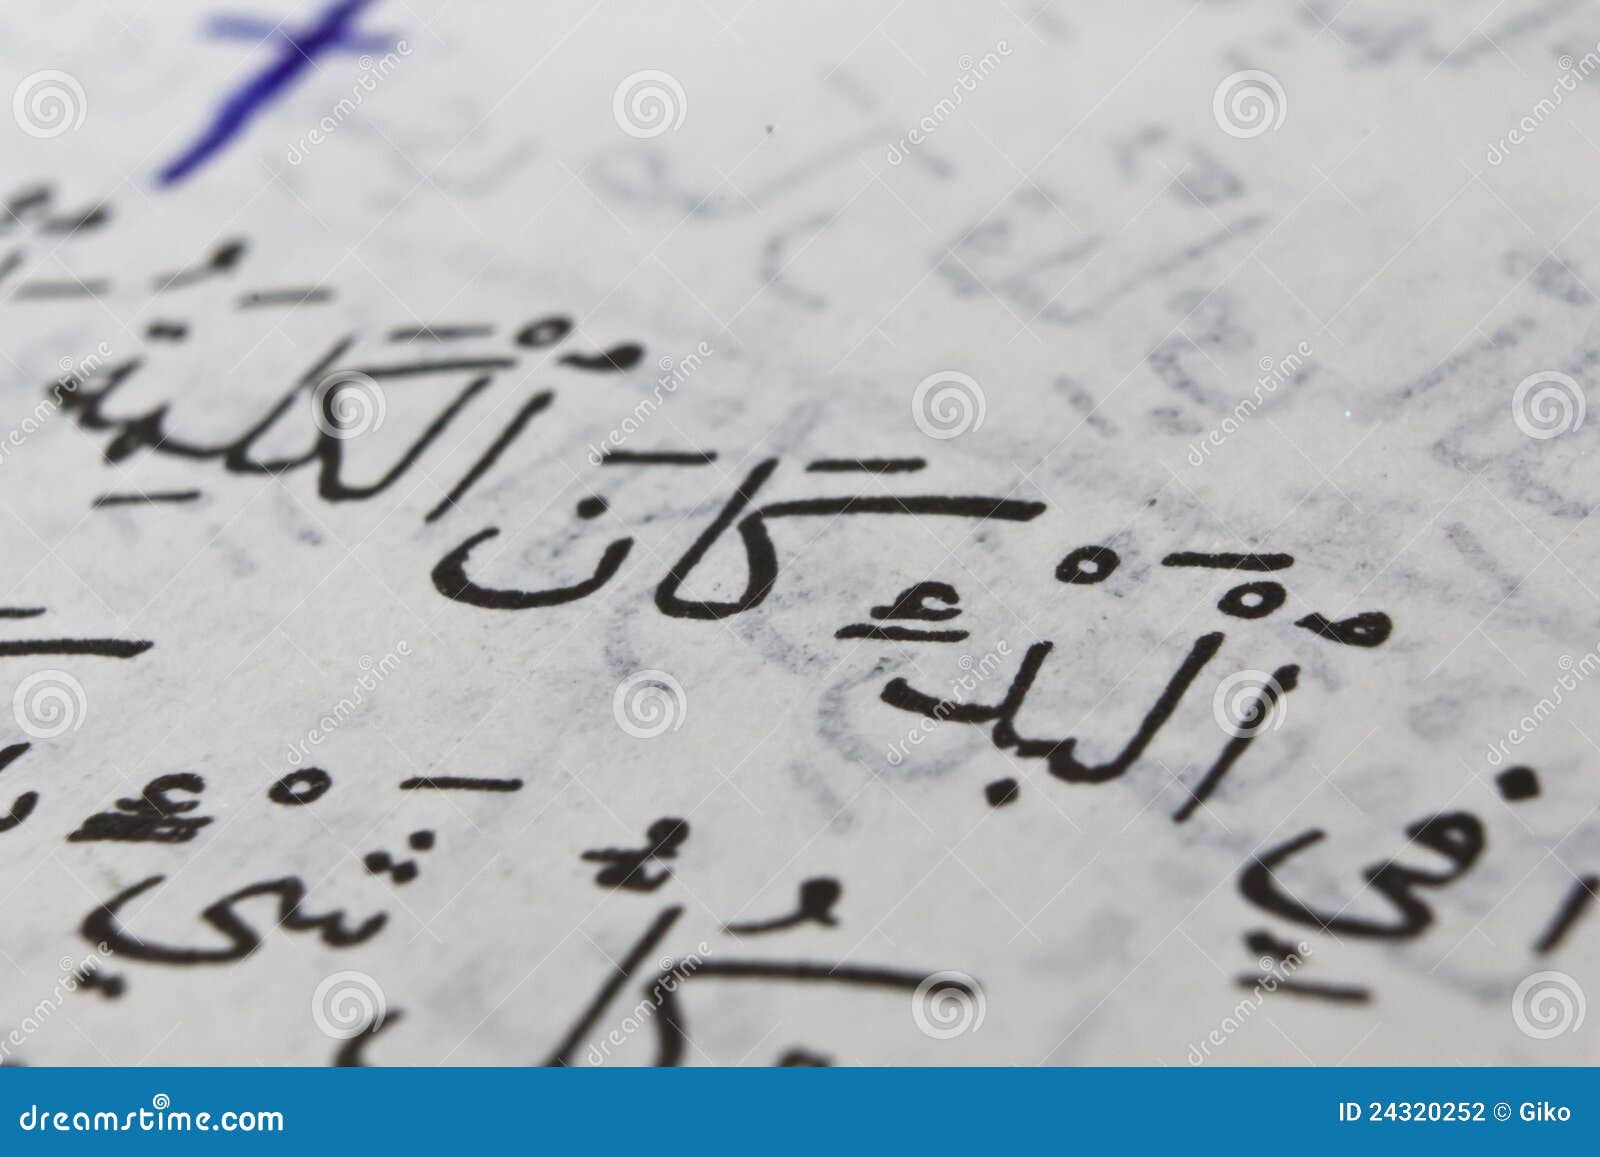 ١ فِي ٱلْبَدْءِ كَانَ ٱلْكَلِمَةُ
كُلُّ شَيْءٍ
dreamstime.com
ID 24320252 © Giko